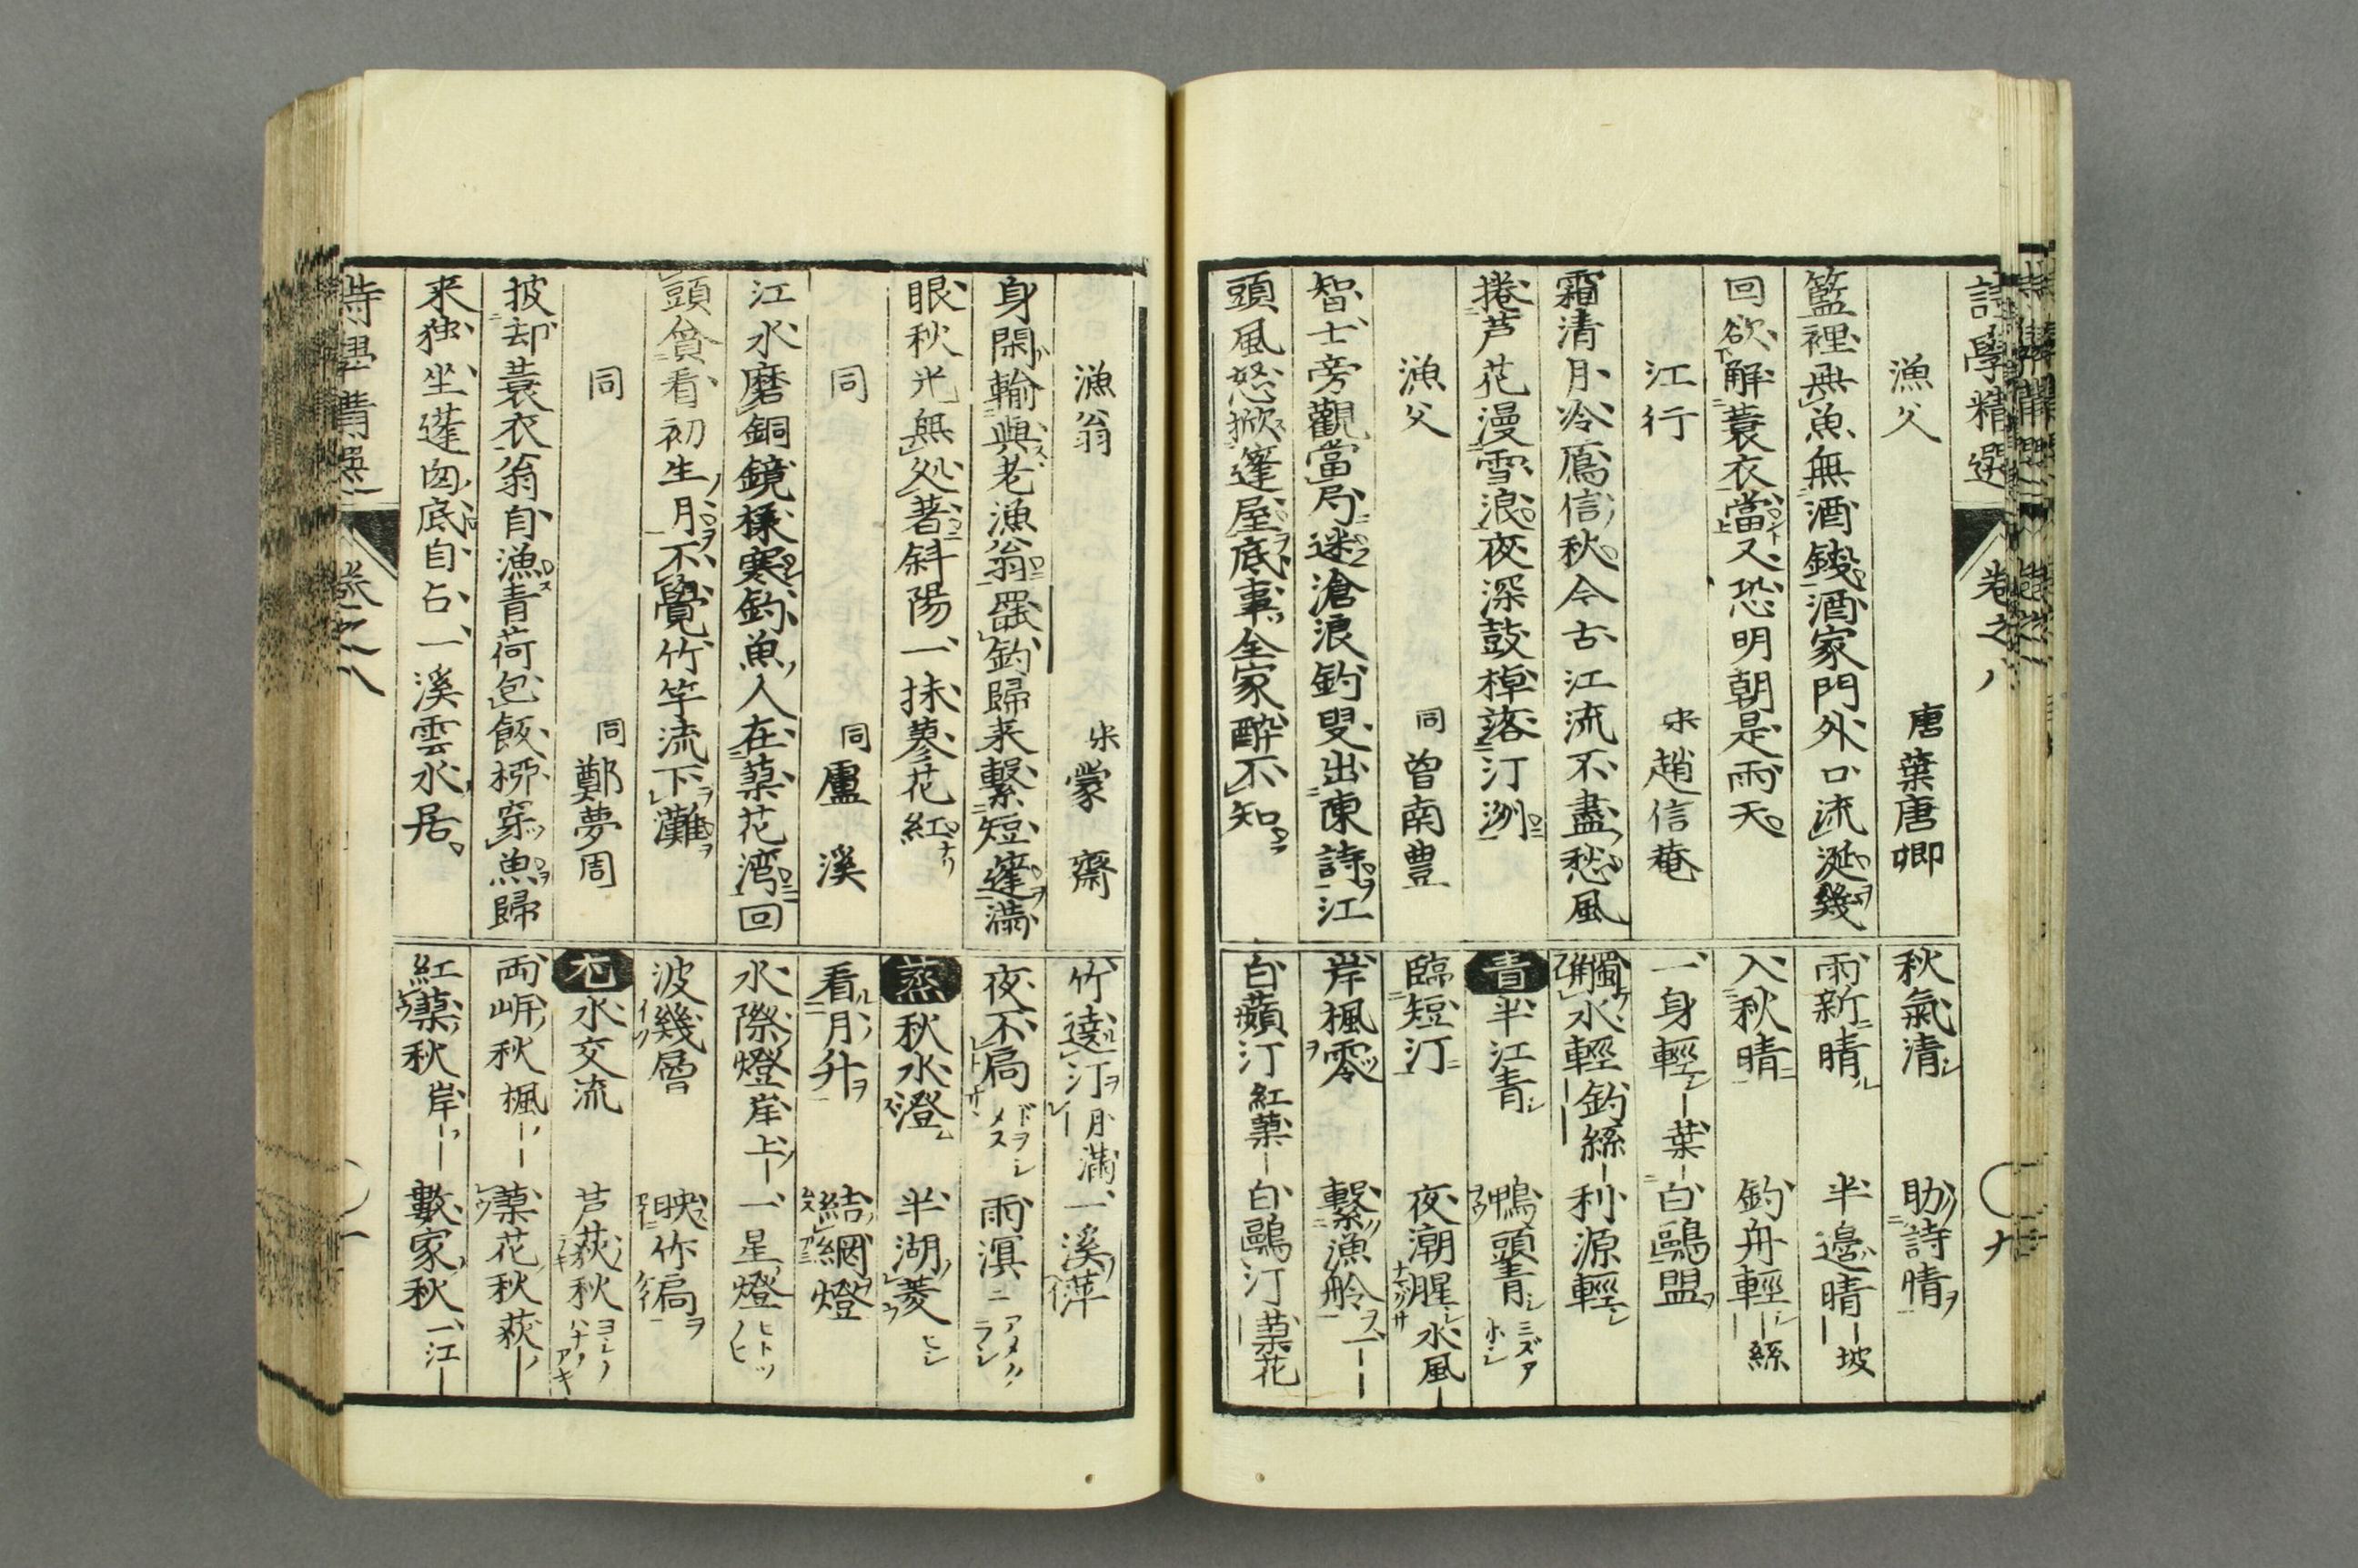 詩學精選 卷之八 九
漁父 唐葉唐卿
籃裡無魚無酒錢酒家門外口流涎幾
回欲解蓑衣當又恐明朝是雨天
江行 宋趙信菴
霜清月冷鴈信秋今古江流不盡愁風
捲芦花漫雪浪夜深鼓棹落汀洲
漁父 同曾南豊
智士旁觀當局迷滄浪釣叟出陳詩江
頭風怒掀篷屋底事全家醉不知
秋氣清シ 助詩情ヲ
雨新晴ル 半邉晴 坡
入秋晴ニ 釣舟輕シ 絲
一身輕シ 葉 白鷗盟
觸水輕 釣絲 利源輕シ
青 半江青シ 鴨頭青シ ミズアホシ
臨短汀ニ 夜潮腥シ 水風
岸楓零 繋漁舲ヲ
白蘋汀 紅蕖 白鷗汀 葉花
漁翁 宋蒙齋
身閑輸與老漁翁罷釣歸来繋短篷滿
眼秋光無処著斜陽一抹蓼花紅
同 同盧溪
江水磨銅鏡様寒釣魚人在葉花湾回
頭貪看初生月不覺竹竿流下灘
同 同鄭夢周
披却蓑衣翁自漁青荷包飯栁穿魚歸
来独坐蓬囪底自占一溪雲水居
竹遶汀 月滿 一溪萍
夜不扃 雨溟ニ
蒸 秋水澄ム 半湖菱 ヒシ
看月升ヲ 結網燈
水際燈 岸上 一星燈 ヒトツノヒ
波幾層 映作徧ヲ
尤 水交流 芦荻秋 ヨシノハナノアキ
両岸秋 楓 葉花秋 荻
紅葉秋 岸 數家秋 一江
詩學精選 卷之八